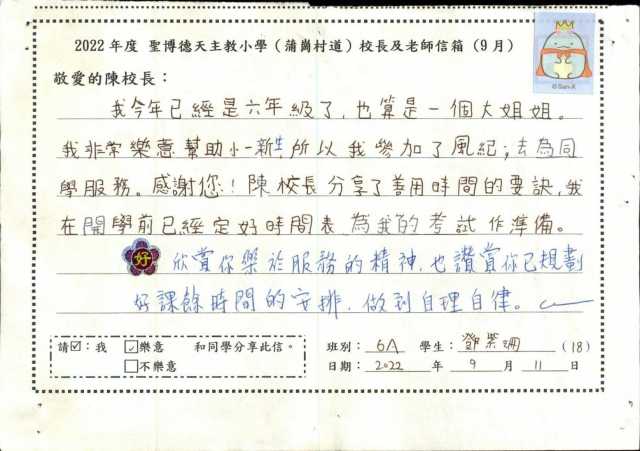 2022 年度 聖博德天主教小學（蒲崗村道）校長及老師信箱（9 月）
© San-X
敬愛的陳校長：
我今年已經是六年級了，也算是一個大姐姐。
我非常樂意幫助小一新生，所以我參加了風紀；去為同
學服務。感謝您！陳校長分享了善用時間的要訣，我
在開學前已經定好時間表為我的考試作準備。
好 欣賞你樂於服務的精神，也讚賞你已規劃
好課餘時間的安排，做到自理自律。
請☑：我 ☑樂意 和同學分享此信。 班別： 6A 學生： 鄧紫珊 (18)
□不樂意 日期： 2022 年 9 月 11 日